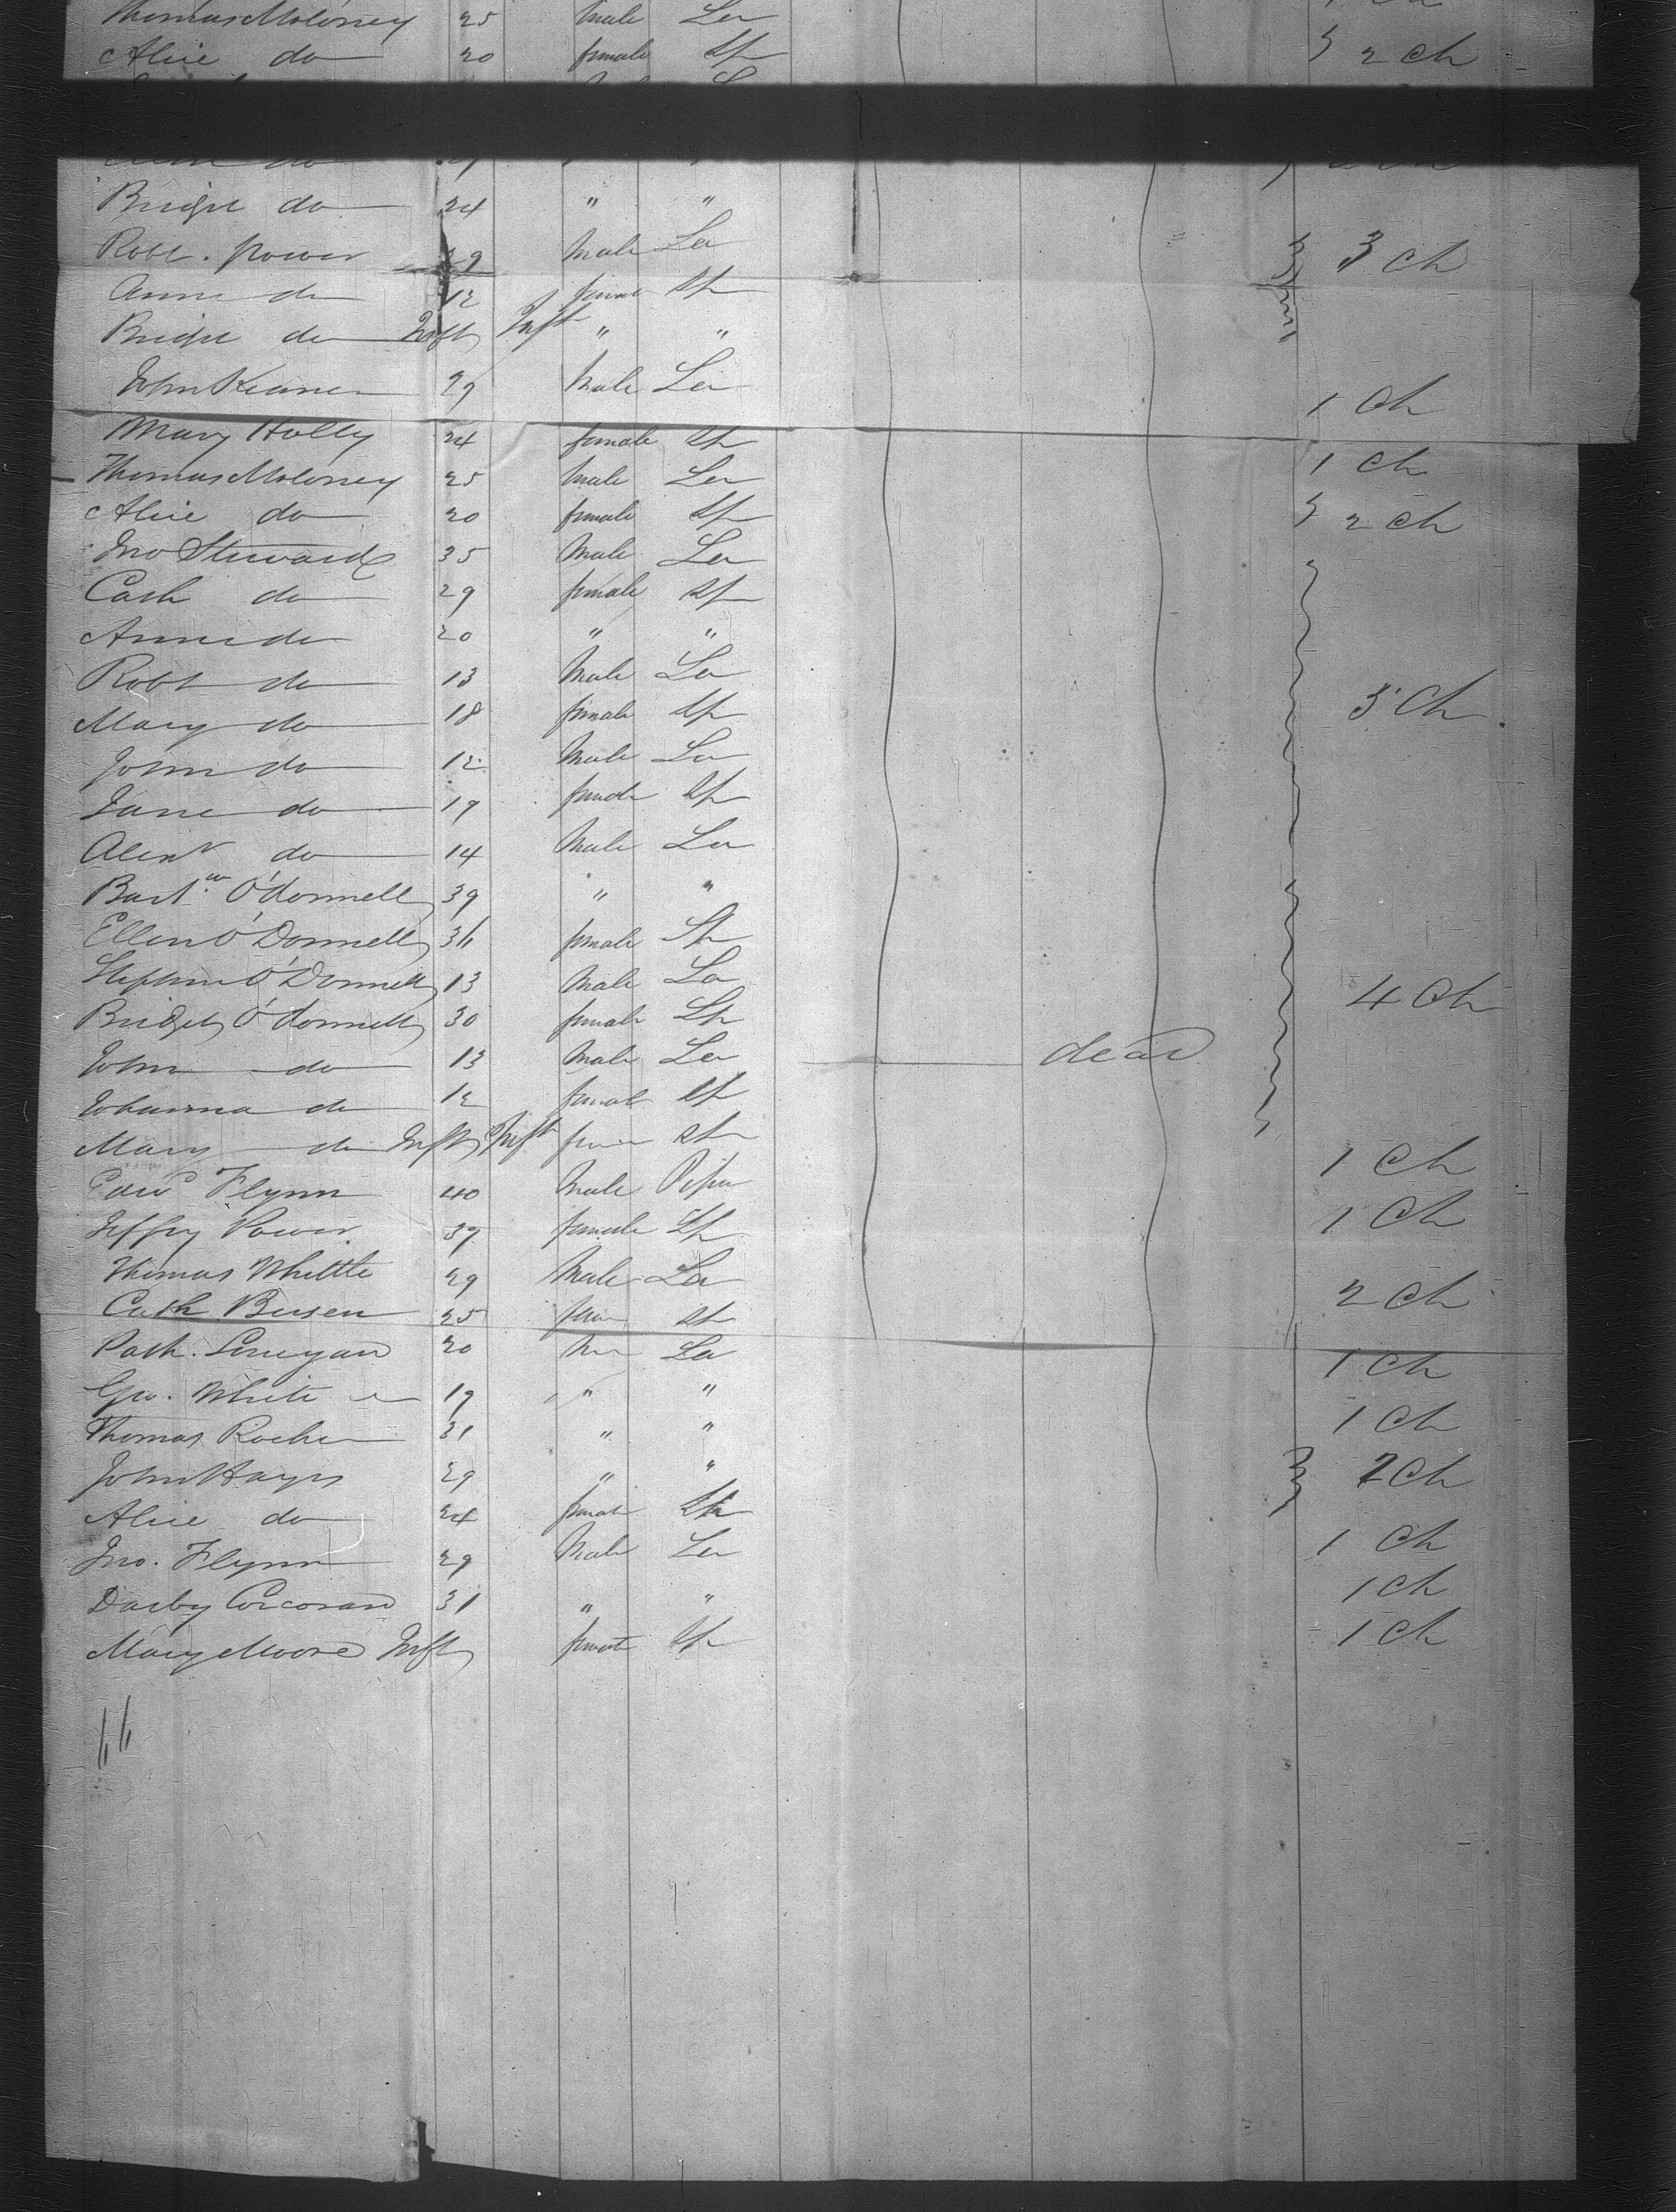 Thomas Moloney 25 Male La
Alice do 20 female Sp 2 Ch
Bridget do 24 " "
Robt. Power 29 Male La 3 Ch
Anne do 12 female Sp
Bridget do Inft Inft " "
John Keane 29 Male La 1 Ch
Mary Holly 24 female Sp 1 Ch
Thomas Moloney 25 Male La
Alice do 20 female Sp 2 Ch
Jno Steward 35 Male La
Cath do 29 female Sp
Anne do 20 " "
Robt do 13 Male La
Mary do 18 female Sp 5 Ch
John do 12 Male La
Jane do 19 female Sp
Alexr do 14 Male La
Bartw O'donnell 39 " "
Ellen O'Donnell 36 female Sp
Stephen O'Donnell 13 Male La
Bridget O'donnell 30 female Sp 4 Ch
John do 13 Male La dead
Johanna do 12 female Sp
Mary do Inft Inft fem Sp
Edwd Flynn 40 Male 1 Ch
Jeffry Power 39 female Sp 1 Ch
Thomas Whittle 29 Male La
Cath 25 fem Sp 2 Ch
Path. 20 M La 1 Ch
Geo. White 19 " " 1 Ch
Thomas Roche 31 " "
John Hays 29 " " 2 Ch
Alice do 24 female Sp
Jno. Flynn 29 Male La 1 Ch
Darby Corcoran 31 " " 1 Ch
Mary Moore Inft female Sp 1 Ch
66